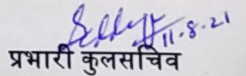 11.8.21
प्रभारी कुलसचिव